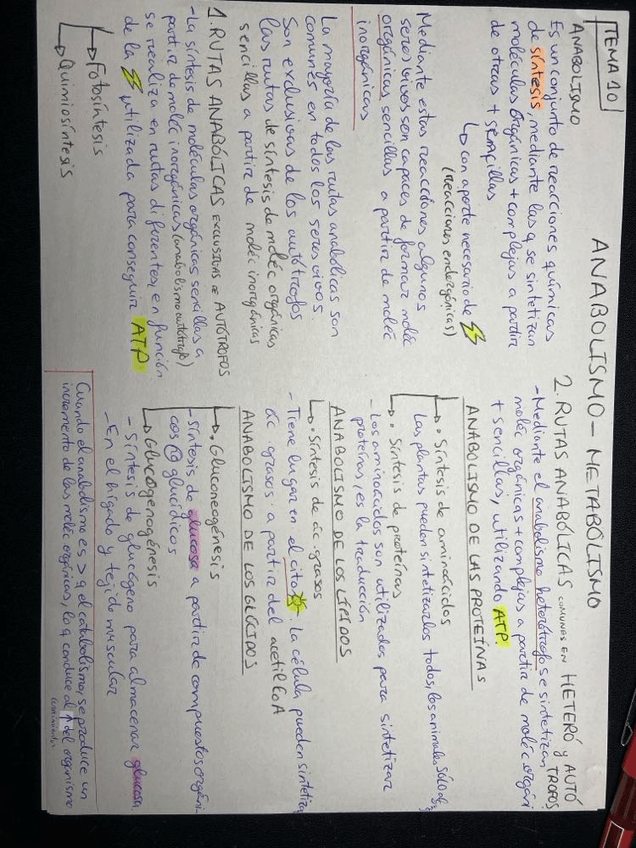 TEMA 10
ANABOLISMO - METABOLISMO
ANABOLISMO
Es un conjunto de reacciones químicas
de síntesis, mediante las q se sintetizan
moléculas orgánicas + complejas a partir
de otras + sencillas
↳ con aporte necesario de ⚡
(reacciones endergónicas)
Mediante estas reacciones algunos
seres vivos son capaces de formar moléc
orgánicas sencillas a partir de moléc
inorgánicas
La mayoría de las rutas anabólicas son
comunes en todos los seres vivos.
Son exclusivas de los autótrofos
las rutas de síntesis de moléc orgánicas
sencillas a partir de moléc inorgánicas
1. RUTAS ANABÓLICAS EXCLUSIVAS DE AUTÓTROFOS
- La síntesis de moléculas orgánicas sencillas a
partir de moléc inorgánicas (anabolismo autótrofo)
se realiza en rutas diferentes, en función
de la ⚡ utilizada para conseguir ATP
↳ Fotosíntesis
↳ Quimiosíntesis
2. RUTAS ANABÓLICAS COMUNES EN HETERÓ y AUTÓ
TROFOS
- Mediante el anabolismo heterótrofo se sintetizan
moléc orgánicas + complejas a partir de moléc orgáni
+ sencillas, utilizando ATP
ANABOLISMO DE LAS PROTEÍNAS
↳ • Síntesis de aminoácidos
Las plantas pueden sintetizarlos todos, los animales sólo
↳ • Síntesis de proteínas
- Los aminoácidos son utilizados para sintetizar
proteínas, es la traducción
ANABOLISMO DE LOS LÍPIDOS
↳ • Síntesis de ác. grasos
- Tiene lugar en el cito la célula pueden sintetiza
ác. grasos a partir del acetil CoA
ANABOLISMO DE LOS GLÚCIDOS
↳ • Gluconeogénesis
- Síntesis de glucosa a partir de compuestos orgáni
cos glucídicos
↳ Glucogenogénesis
- Síntesis de glucógeno para almacenar glucosa
- En el hígado y tejido muscular
Cuando el anabolismo es > q el catabolismo, se produce un
incremento de las moléc orgánicas, lo q conduce al ↑ del organismo